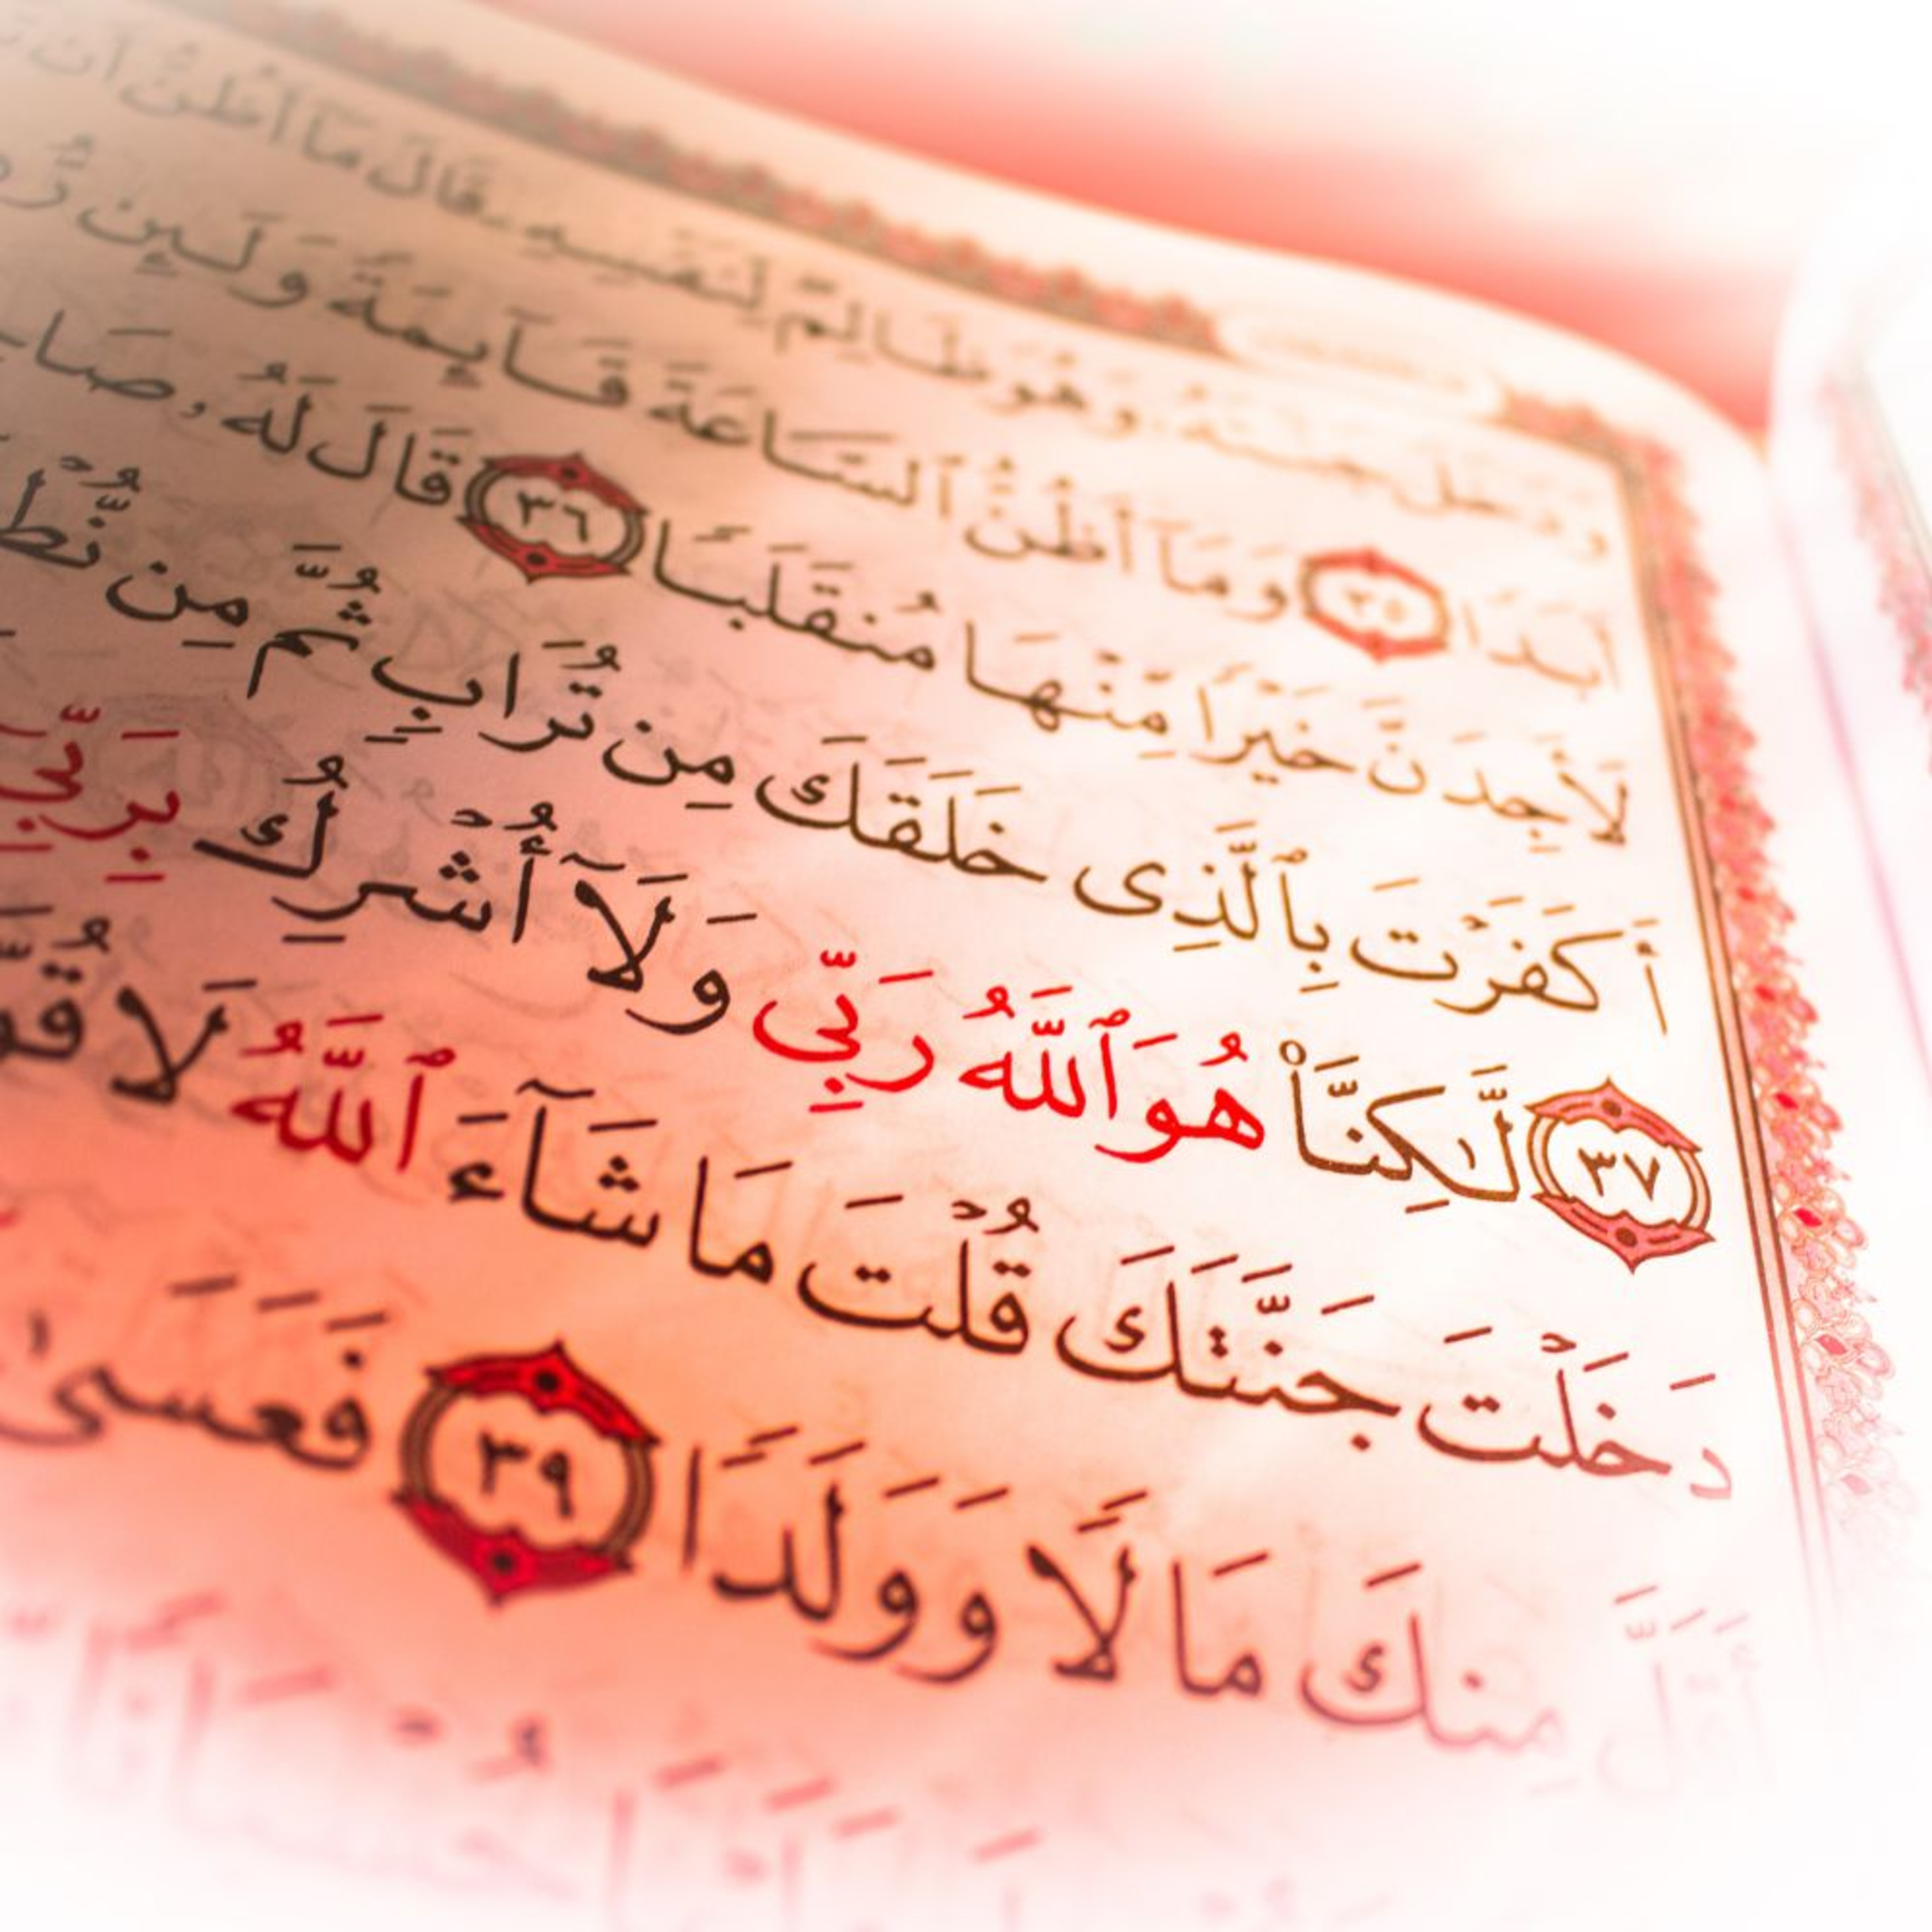 وَدَخَلَ جَنَّتَهُۥ وَهُوَ ظَالِمٌ لِّنَفْسِهِۦ قَالَ مَآ أَظُنُّ أَن
أَبَدًا ٣٥ وَمَآ أَظُنُّ ٱلسَّاعَةَ قَآئِمَةً وَلَئِن
لَأَجِدَنَّ خَيْرًا مِّنْهَا مُنقَلَبًا ٣٦ قَالَ لَهُۥ
أَكَفَرْتَ بِٱلَّذِى خَلَقَكَ مِن تُرَابٍ ثُمَّ مِن
٣٧ لَّٰكِنَّا۠ هُوَ ٱللَّهُ رَبِّى وَلَآ أُشْرِكُ بِرَبِّىٓ
دَخَلْتَ جَنَّتَكَ قُلْتَ مَا شَآءَ ٱللَّهُ لَا
أَقَلَّ مِنكَ مَالًا وَوَلَدًا ٣٩ فَعَسَىٰ